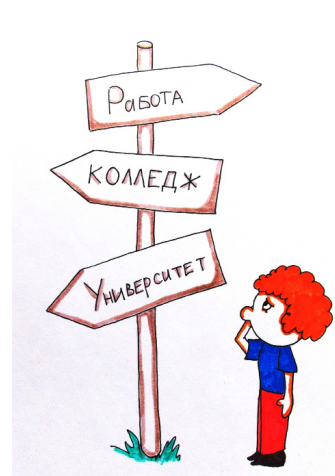 Работа
КОЛЛЕДЖ
Университет